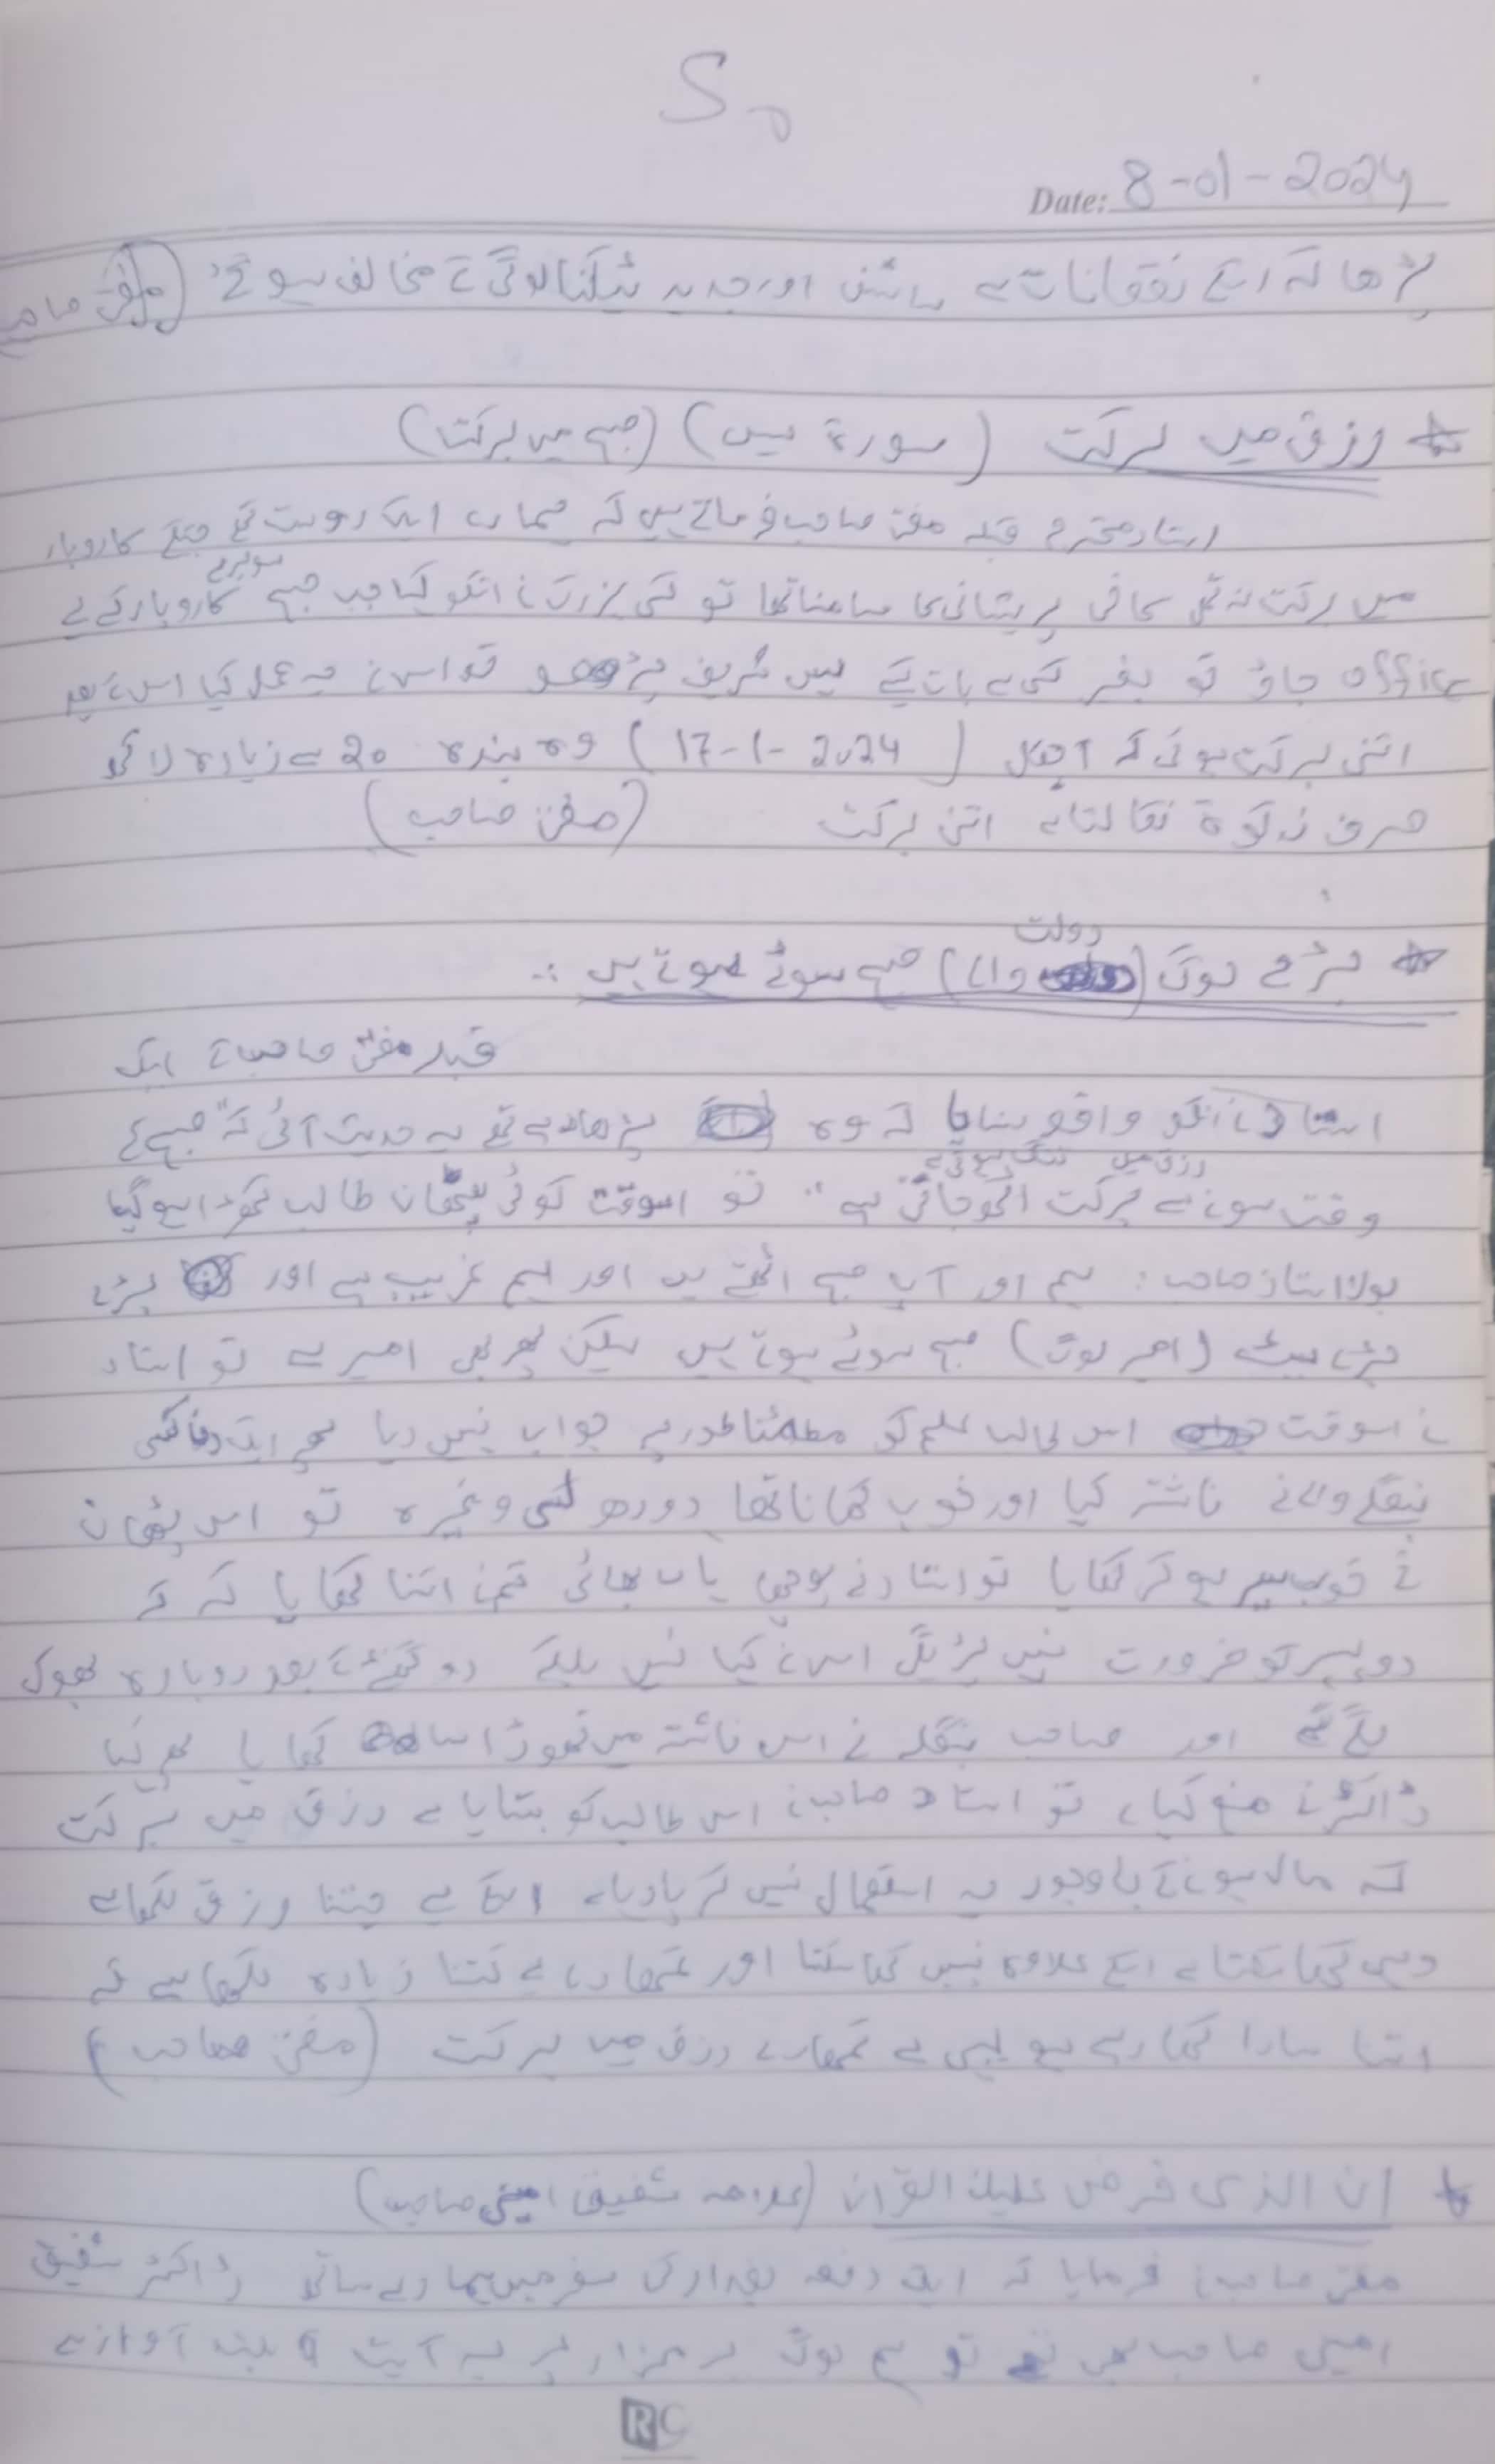 S
Date: 8-01-2024
پڑھا کہ اسکے نقصانات سے سائنس اور جدید ٹیکنالوجی کے مخالف ہوگئے (مفتی صاحب
* رزق میں برکت (سورۃ یس) (صبح میں برکت)
استاد محترم قبلہ مفتی صاحب فرماتے ہیں کہ ہمارے ایک دوست تھے جنکے کاروبار
میں برکت نہ تھی کافی پریشانی کا سامنا تھا تو کسی بزرگ نے انکو کہا جب صبح سویرے کاروبار کے لے
office جاؤ تو بغیر کسی سے بات کیے یس شریف پڑھو تو اس نے یہ عمل کیا اس کے بعد
اتنی برکت ہوئی کہ آجکل (17-1-2024) وہ بندہ 20 سے زیادہ لاکھ
صرف زکوۃ نکالتا ہے اتنی برکت (مفتی صاحب)
* بڑے لوگ (دولت والے) صبح سوئے ہوتے ہیں :.
قبلہ مفتی صاحب کے ایک
استاد نے انکو واقعہ سنایا کہ وہ پڑھا رہے تھے یہ حدیث آئی کہ "صبح کے
وقت سونے سے برکت اٹھ جاتی ہے" رزق میں تنگی ہوتی ہے تو اسوقت کوئی پٹھان طالب کھڑا ہوگیا
بولا استاذ صاحب : ہم اور آپ صبح اٹھتے ہیں اور ہم غریب ہے اور بڑے
بڑے سیٹھ (امیر لوگ) صبح سوئے ہوتے ہیں لیکن پھر بھی امیر ہے تو استاد
نے اسوقت اس طالب علم کو مطمئنا طور پہ جواب نہیں دیا پھر ایک دفعا کسی
بنگلے والے نے ناشتہ کیا اور خوب کھانا تھا دودھ لسی وغیرہ تو اس پٹھان
نے خوب سیر ہو کر کھایا تو استاد نے پوچھا یاں بھائی تم نے اتنا کھایا کہ کہ
دوپہر کو ضرورت نہیں پڑیگی اس نے کہا نہیں بلکے دو گھنٹے کے بعد دوبارہ بھوک
لگے گی اور صاحب بنگلہ نے اس ناشتہ میں تھوڑا سا کھایا پھر کہا
ڈاکٹر نے منع کیا، تو استاد صاحب نے اس طالب کو بتایا ہے رزق میں برکت
کہ مال ہونے کے باوجود یہ استعمال نہیں کر پا رہا اسکے لے جتنا رزق لکھا ہے
وہی کھا سکتا ہے اسکے علاوہ نہیں کھا سکتا اور تمھارے لے کتنا زیادہ لکھا ہے کہ
اتنا سارا کھا رہے ہو یہی ہے تمھارے رزق میں برکت (مفتی صاحب)
* ان الذی فرض علیک القرآن (علامہ شفیق امینی صاحب)
مفتی صاحب نے فرمایا کہ ایک دفعہ بغداد کی سفر میں ہمارے ساتھ ڈاکٹر شفیق
امینی صاحب بھی تھے تو ہم لوگ ہر مزار پر یہ آیت بلند آواز سے
RC